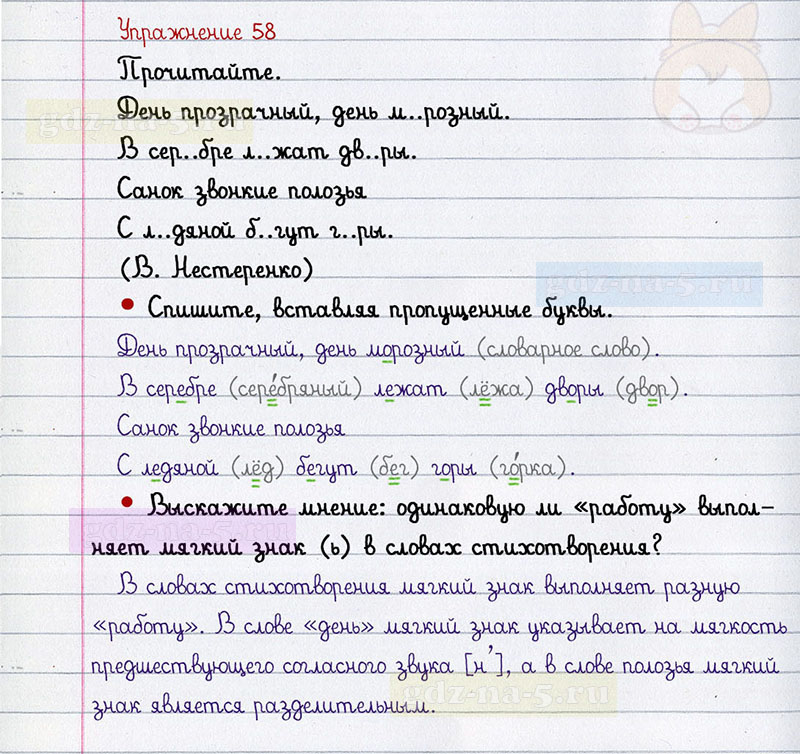 Упражнение 58
Прочитайте.
День прозрачный, день м..розный.
В сер..бре л..жат дв..ры.
Санок звонкие полозья
С л..дяной б..гут г..ры.
(В. Нестеренко)
• Спишите, вставляя пропущенные буквы.
День прозрачный, день морозный (словарное слово).
В серебре (сере́бряный) лежат (лёжа) дворы (двор).
Санок звонкие полозья
С ледяной (лёд) бегут (бег) горы (го́рка).
• Выскажите мнение: одинаковую ли «работу» выпол-
няет мягкий знак (ь) в словах стихотворения?
В словах стихотворения мягкий знак выполняет разную
«работу». В слове «день» мягкий знак указывает на мягкость
предшествующего согласного звука [н'], а в слове полозья мягкий
знак является разделительным.
gdz-na-5.ru
gdz-na-5.ru
gdz-na-5.ru
gdz-na-5.ru